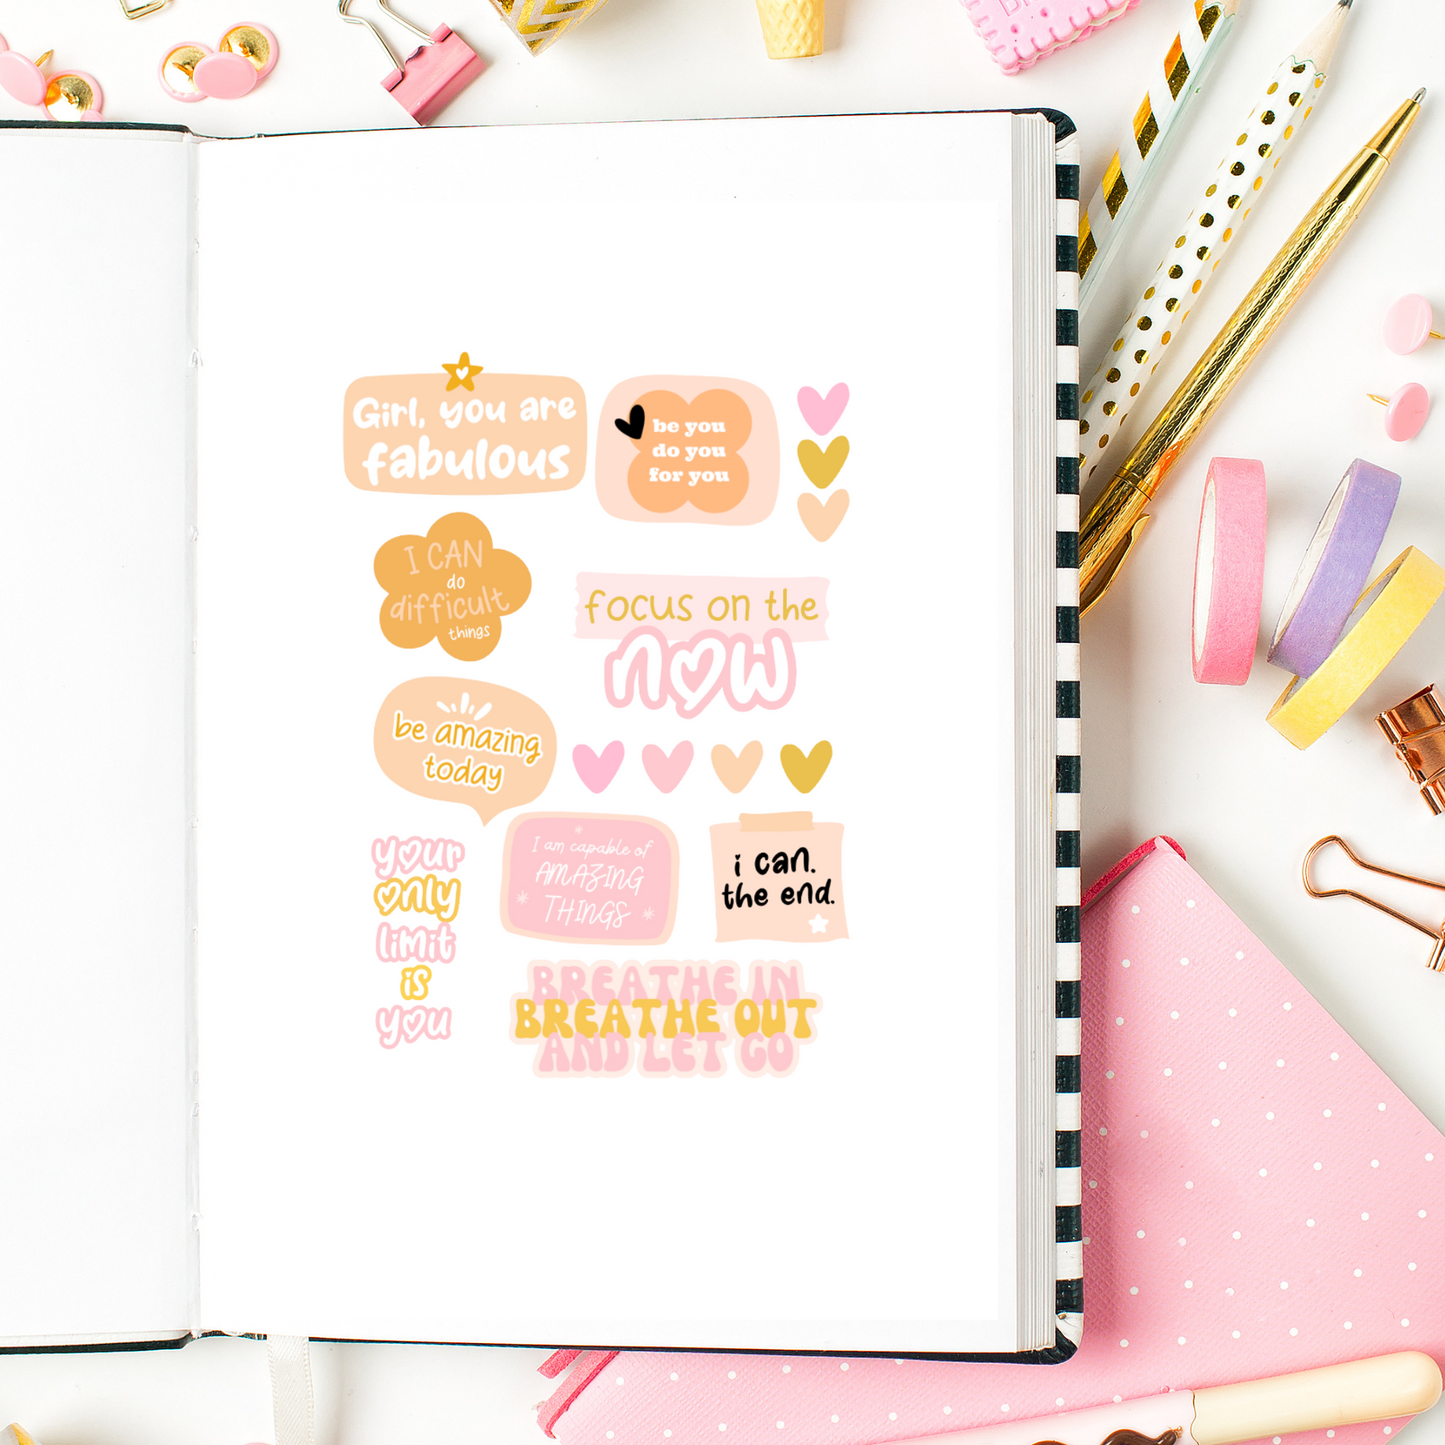 Girl, you are
fabulous
be you
do you
for you
I CAN
do
difficult
things
focus on the
now
be amazing
today
your
only
limit
is
you
I am capable of
AMAZING
THINGS
i can.
the end.
BREATHE IN
BREATHE OUT
AND LET GO